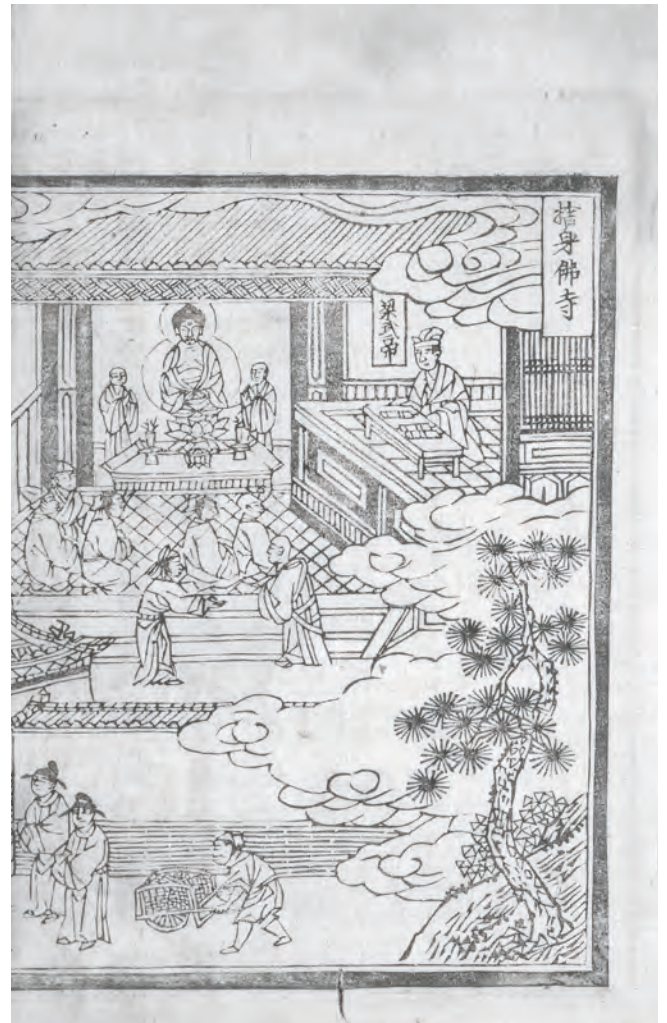 捨身佛寺
梁武帝